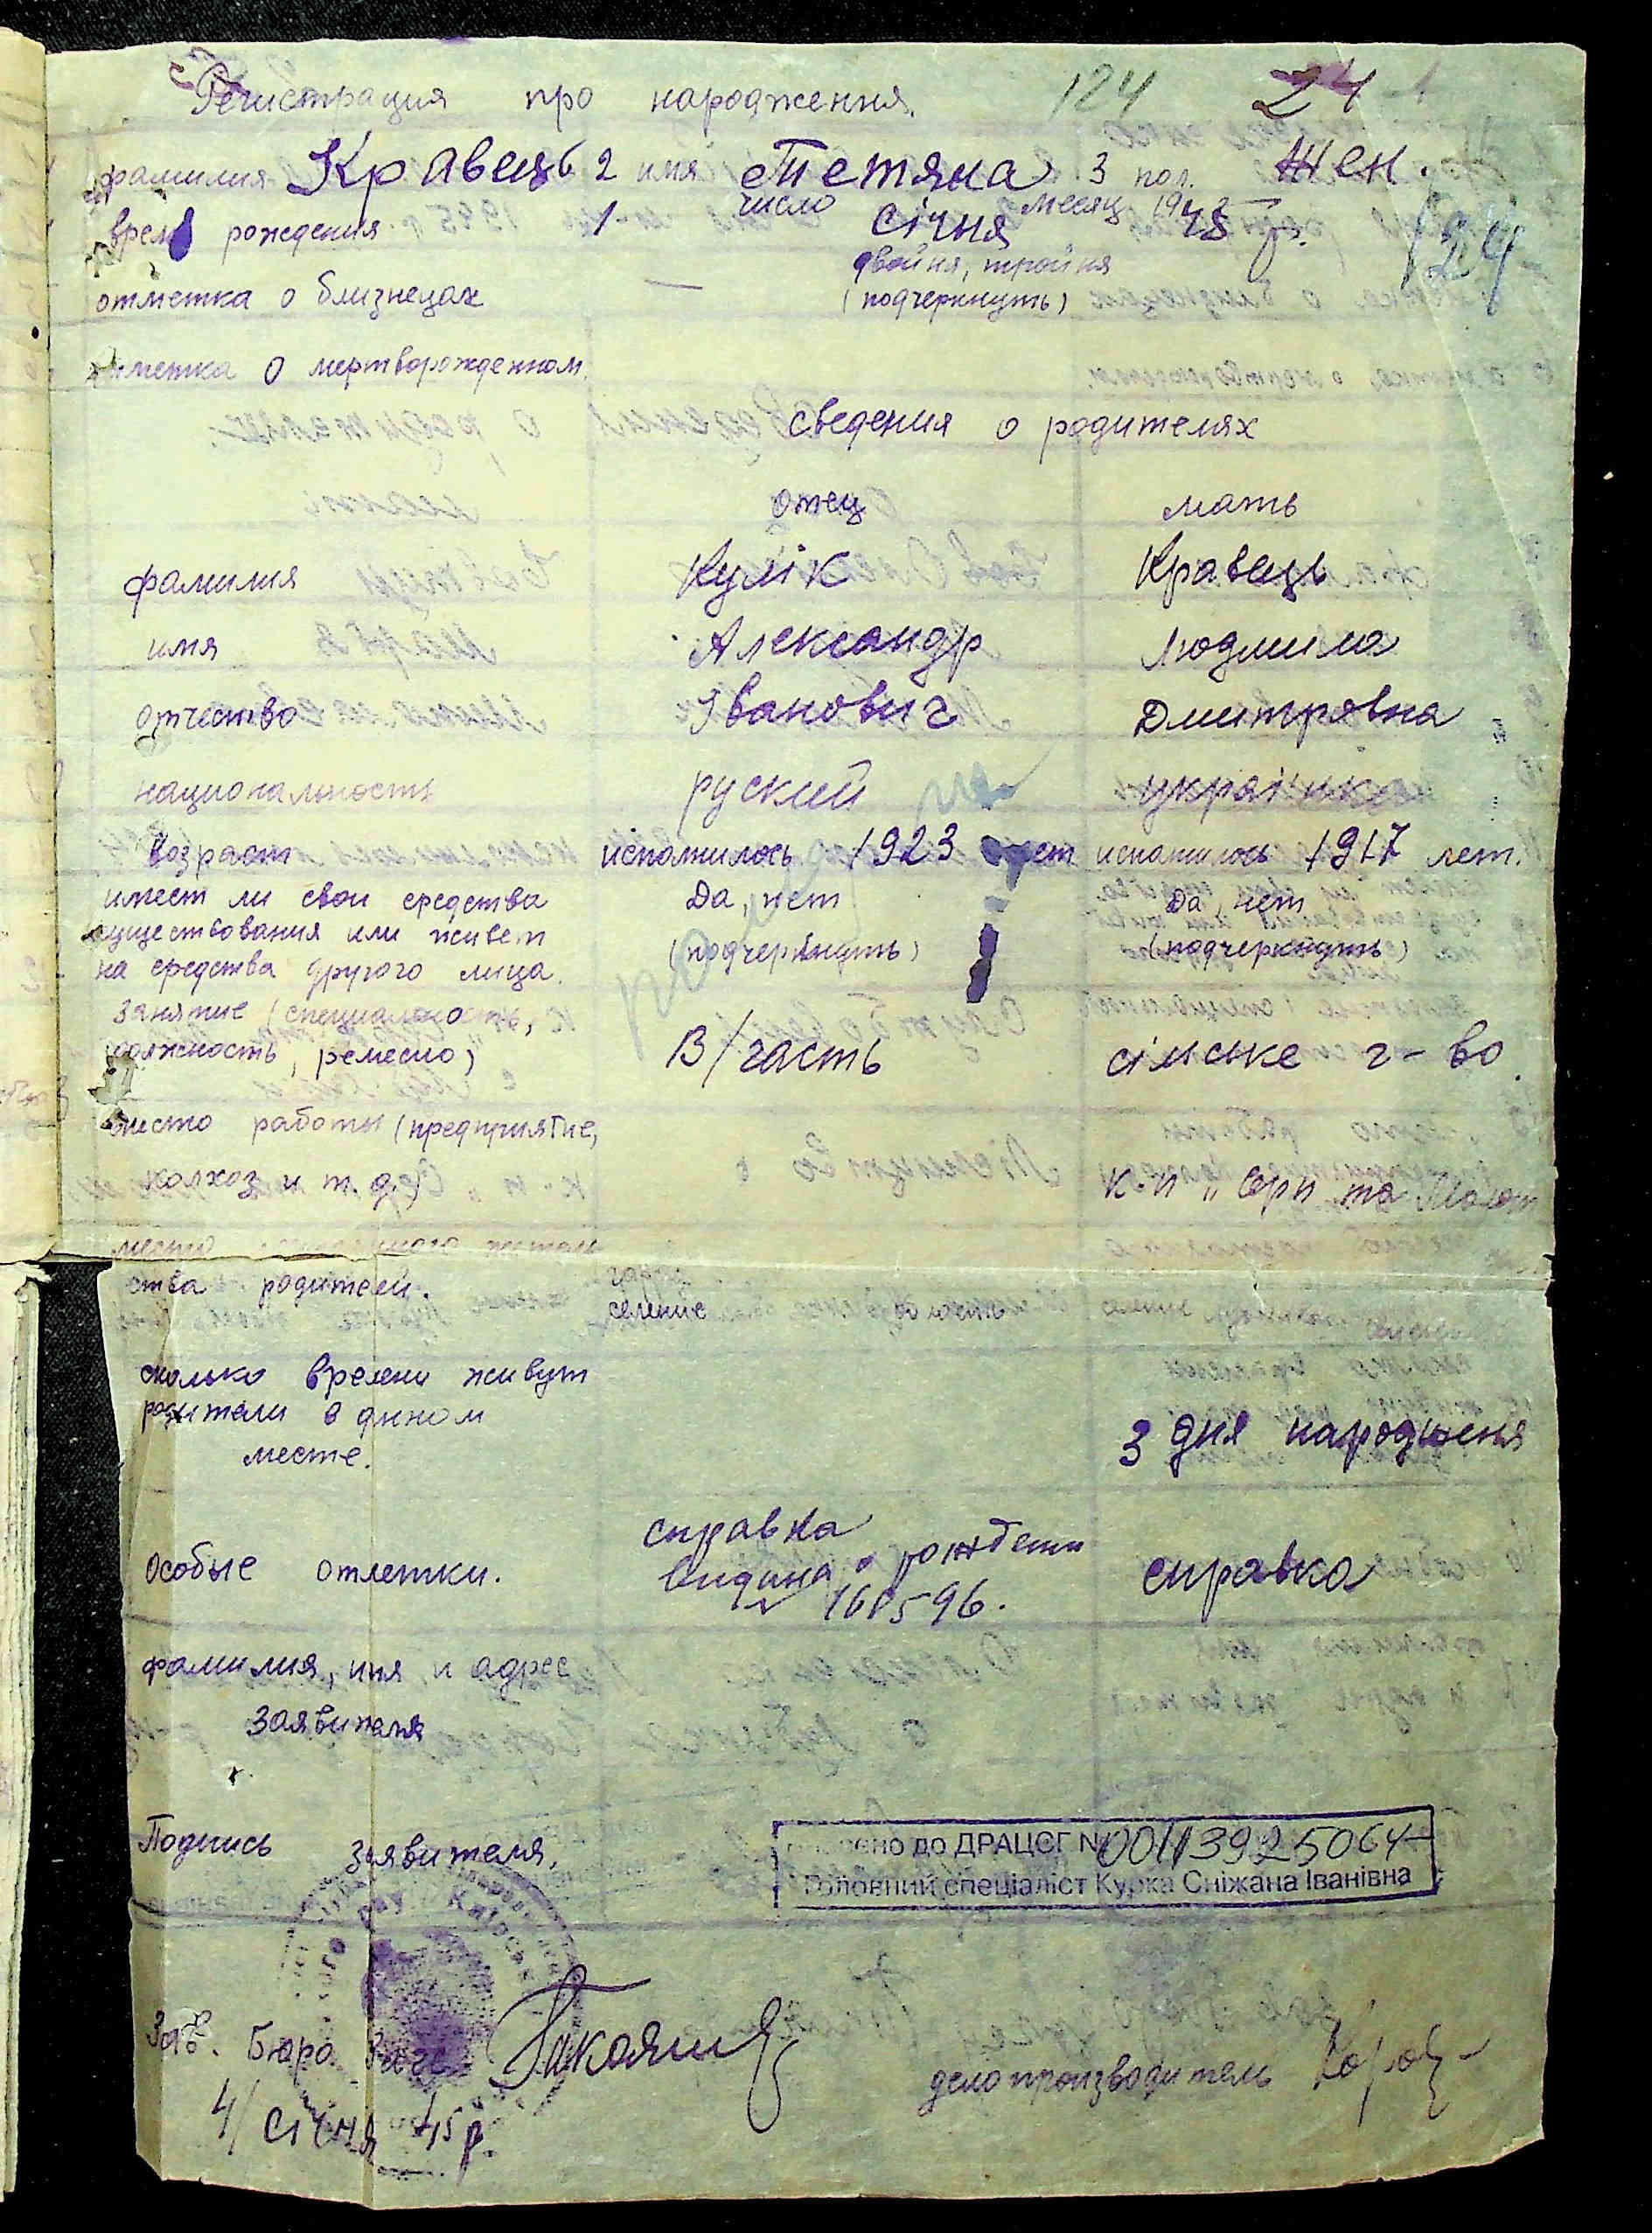 Регистрация про народження. 124 24
фамилия Кравець 2 имя Тетяна 3 пол. Жен.
число месяц 194
время рождения 1 Січня 45 р. 124
двойня, тройня
отметка о близнецах — (подчеркнуть)
отметка о мертворожденном.
сведения о родителях
отец мать
фамилия Кулік Кравець
имя Александр Людмила
отчество Іванович Дмитровна
национальность руский українка
Возраст исполнилось 1923 лет исполнилось 1917 лет.
имеет ли свои средства Да, нет Да, нет
существования или живет (подчеркнуть) (подчеркнуть)
на средства другого лица.
Занятие (специальность,
должность, ремесло) В/часть сільске г-во
место работы (предприятие,
колхоз и т.д.) к-п „Серп та Молот
место житель
ства родителей.
селение область селение
сколько времени живут
родители в дином
месте. З дня народженя
справка
Особые отметки. видана о рождении справка
161596.
фамилия, имя и адрес
Заявителя
Подпись заявителя.
внесено до ДРАЦСГ №00113925064
Головний спеціаліст Курка Сніжана Іванівна
Зав. Бюро Загс делопроизводитель
4/Січня 45 р.